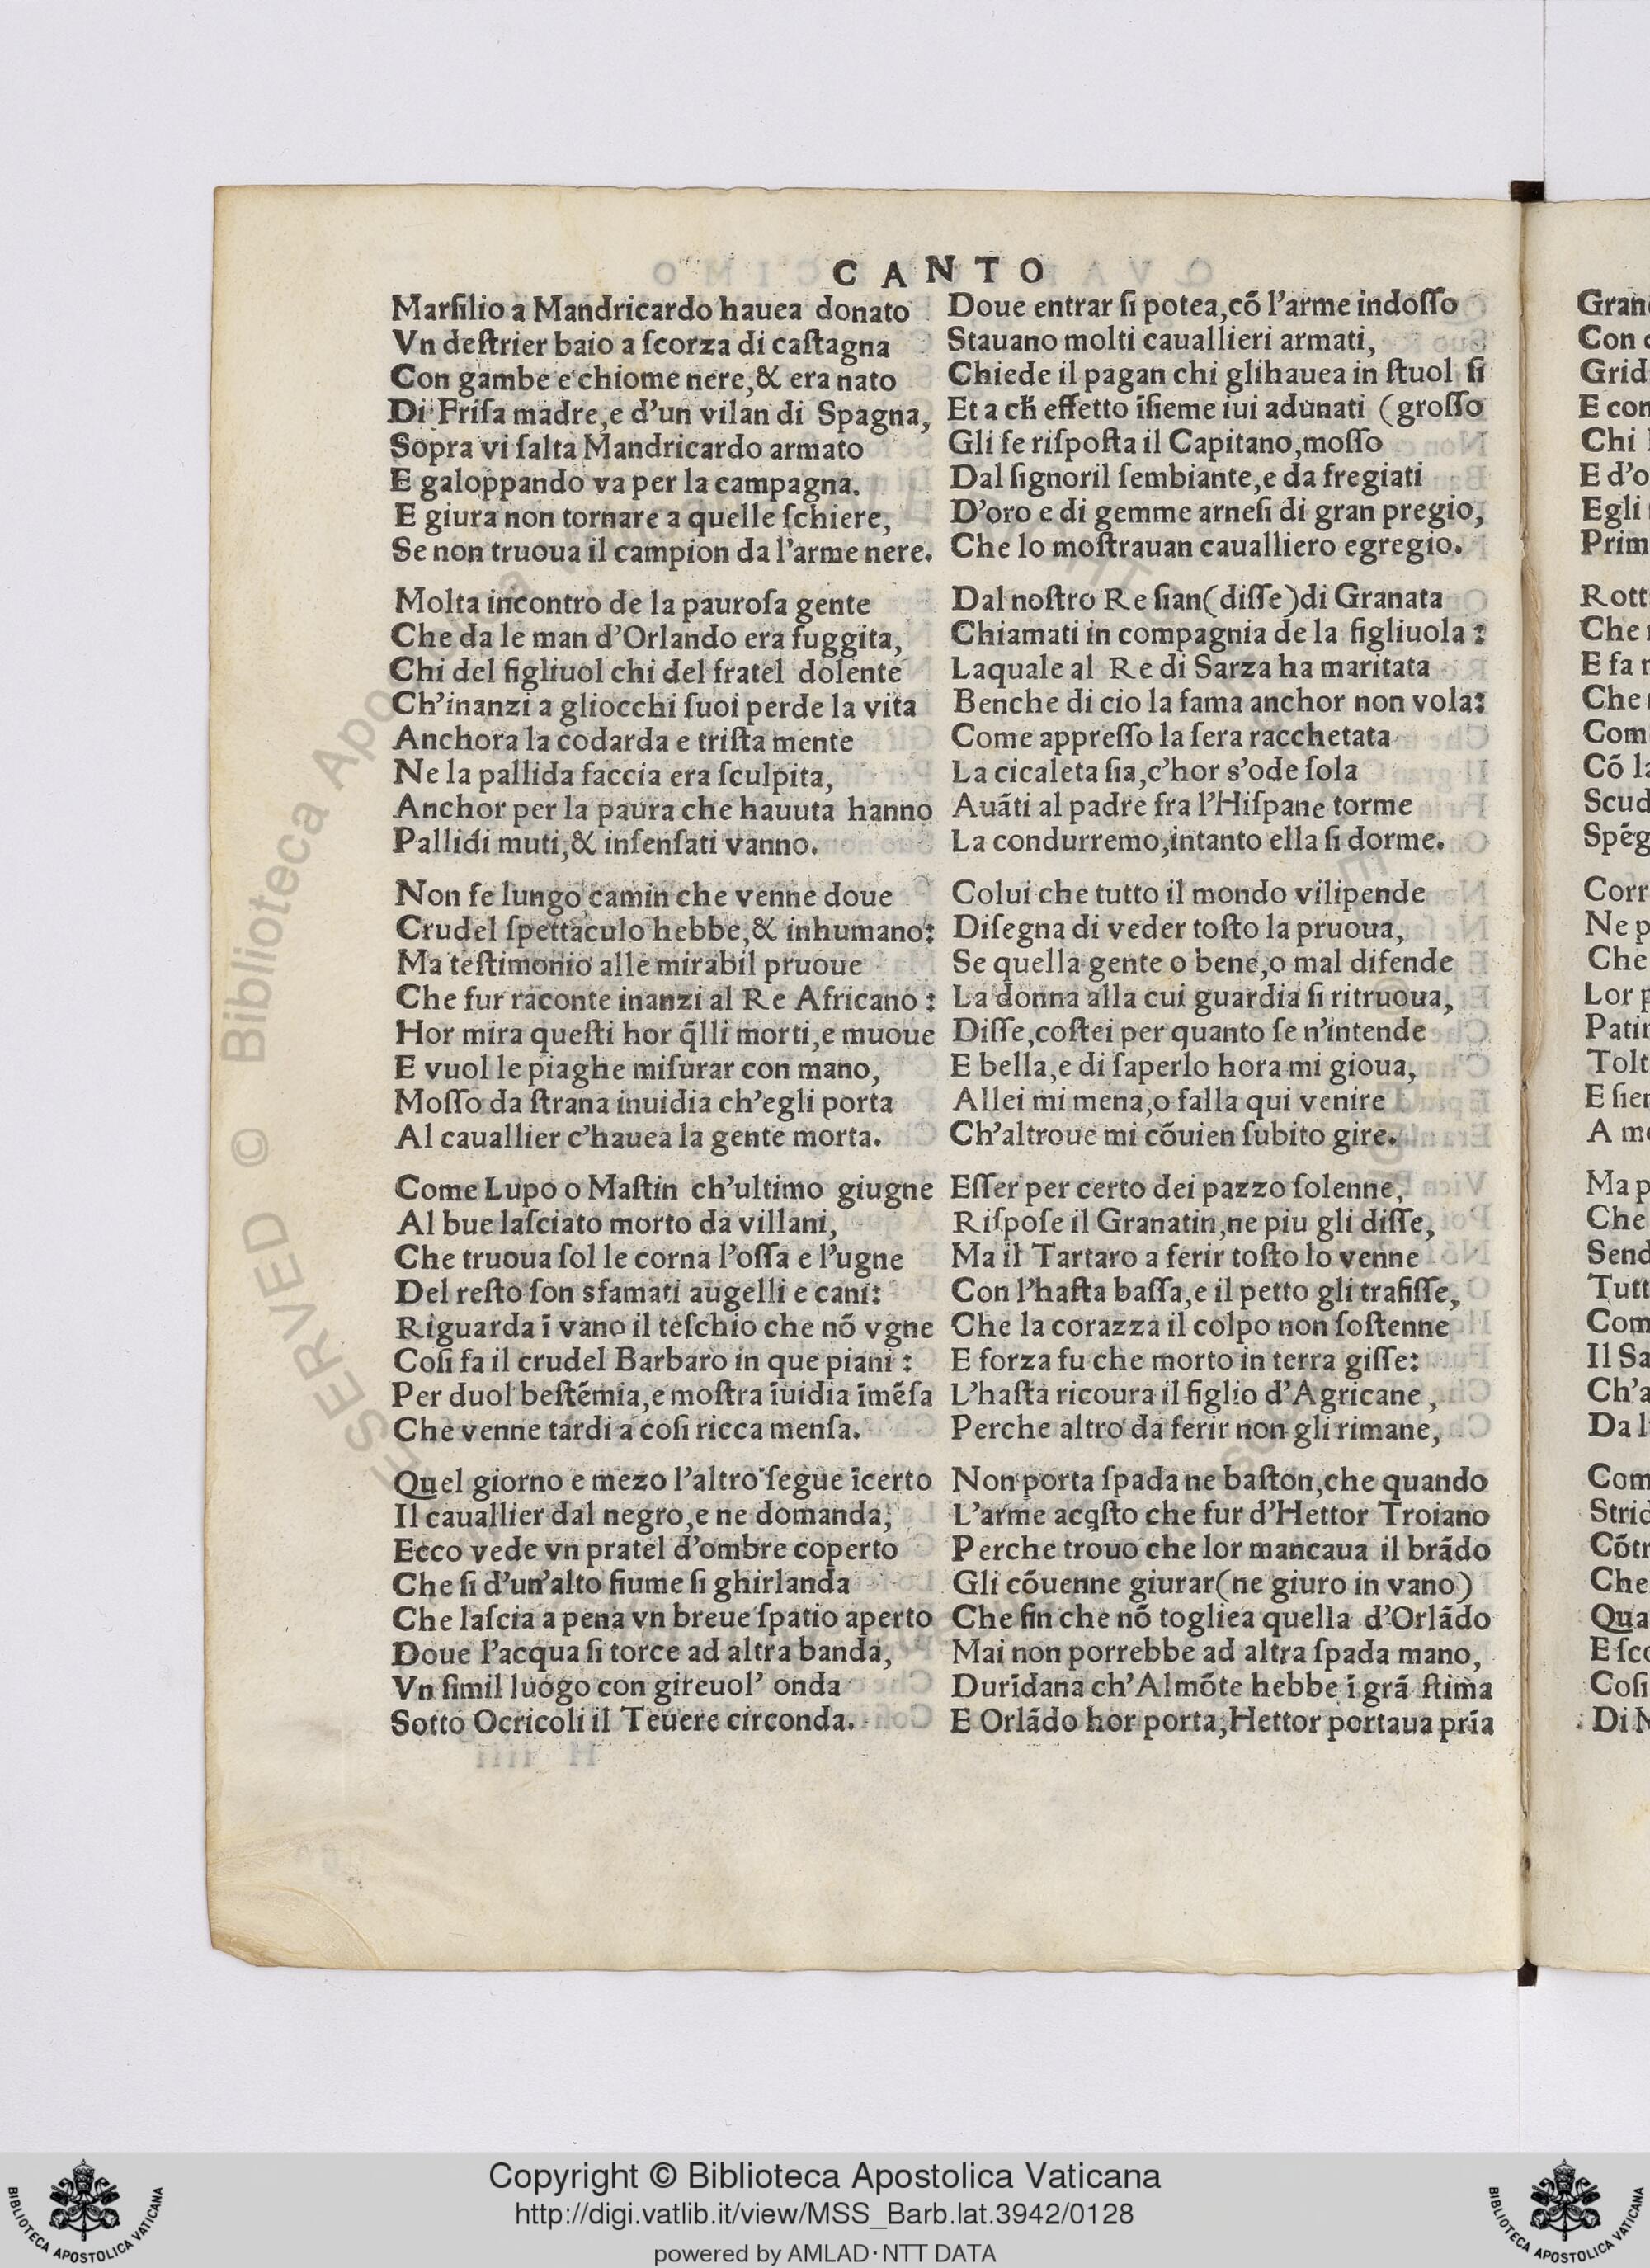 CANTO
Marſilio a Mandricardo hauea donato
Vn deſtrier baio a ſcorza di caſtagna
Con gambe e chiome nere,& era nato
Di Friſa madre,e d'un vilan di Spagna,
Sopra vi ſalta Mandricardo armato
E galoppando va per la campagna.
E giura non tornare a quelle ſchiere,
Se non truoua il campion da l'arme nere.
Molta incontro de la pauroſa gente
Che da le man d'Orlando era fuggita,
Chi del figliuol chi del fratel dolente
Ch'inanzi a gliocchi ſuoi perde la vita
Anchora la codarda e triſta mente
Ne la pallida faccia era ſculpita,
Anchor per la paura che hauuta hanno
Pallidi muti,& inſenſati vanno.
Non fe lungo camin che venne doue
Crudel ſpettaculo hebbe,& inhumano:
Ma teſtimonio alle mirabil pruoue
Che fur raconte inanzi al Re Africano :
Hor mira queſti hor q̃lli morti,e muoue
E vuol le piaghe miſurar con mano,
Moſſo da ſtrana inuidia ch'egli porta
Al cauallier c'hauea la gente morta.
Come Lupo o Maſtin ch'ultimo giugne
Al bue laſciato morto da villani,
Che truoua ſol le corna l'oſſa e l'ugne
Del reſto ſon sfamati augelli e cani:
Riguarda ĩ vano il teſchio che nõ vgne
Coſi fa il crudel Barbaro in que piani :
Per duol beſtẽmia,e moſtra ĩuidia ĩmẽſa
Che venne tardi a coſi ricca menſa.
Quel giorno e mezo l'altro ſegue ĩcerto
Il cauallier dal negro,e ne domanda,
Ecco vede vn pratel d'ombre coperto
Che ſi d'un'alto fiume ſi ghirlanda
Che laſcia a pena vn breue ſpatio aperto
Doue l'acqua ſi torce ad altra banda,
Vn ſimil luogo con gireuol' onda
Sotto Ocricoli il Teuere circonda.
Doue entrar ſi potea,cõ l'arme indoſſo
Stauano molti cauallieri armati,
Chiede il pagan chi glihauea in ſtuol ſi
Et a ch̃ effetto ĩſieme iui adunati (groſſo
Gli fe riſpoſta il Capitano,moſſo
Dal ſignoril ſembiante,e da fregiati
D'oro e di gemme arneſi di gran pregio,
Che lo moſtrauan caualliero egregio.
Dal noſtro Re ſian(diſſe)di Granata
Chiamati in compagnia de la figliuola :
Laquale al Re di Sarza ha maritata
Benche di cio la fama anchor non vola:
Come appreſſo la ſera racchetata
La cicaleta ſia,c'hor s'ode ſola
Auãti al padre fra l'Hiſpane torme
La condurremo,intanto ella ſi dorme.
Colui che tutto il mondo vilipende
Diſegna di veder toſto la pruoua,
Se quella gente o bene,o mal difende
La donna alla cui guardia ſi ritruoua,
Diſſe,coſtei per quanto ſe n'intende
E bella,e di ſaperlo hora mi gioua,
Allei mi mena,o falla qui venire
Ch'altroue mi cõuien ſubito gire.
Eſſer per certo dei pazzo ſolenne,
Riſpoſe il Granatin,ne piu gli diſſe,
Ma il Tartaro a ferir toſto lo venne
Con l'haſta baſſa,e il petto gli trafiſſe,
Che la corazza il colpo non ſoſtenne
E forza fu che morto in terra giſſe:
L'haſta ricoura il figlio d'Agricane,
Perche altro da ferir non gli rimane,
Non porta ſpada ne baſton,che quando
L'arme acq̃ſto che fur d'Hettor Troiano
Perche trouo che lor mancaua il brãdo
Gli cõuenne giurar(ne giuro in vano)
Che fin che nõ togliea quella d'Orlãdo
Mai non porrebbe ad altra ſpada mano,
Durĩdana ch'Almõte hebbe ĩ grã ſtima
E Orlãdo hor porta,Hettor portaua prĩa
Copyright © Biblioteca Apostolica Vaticana
http://digi.vatlib.it/view/MSS_Barb.lat.3942/0128
powered by AMLAD·NTT DATA
BIBLIOTECA APOSTOLICA VATICANA
BIBLIOTECA APOSTOLICA VATICANA